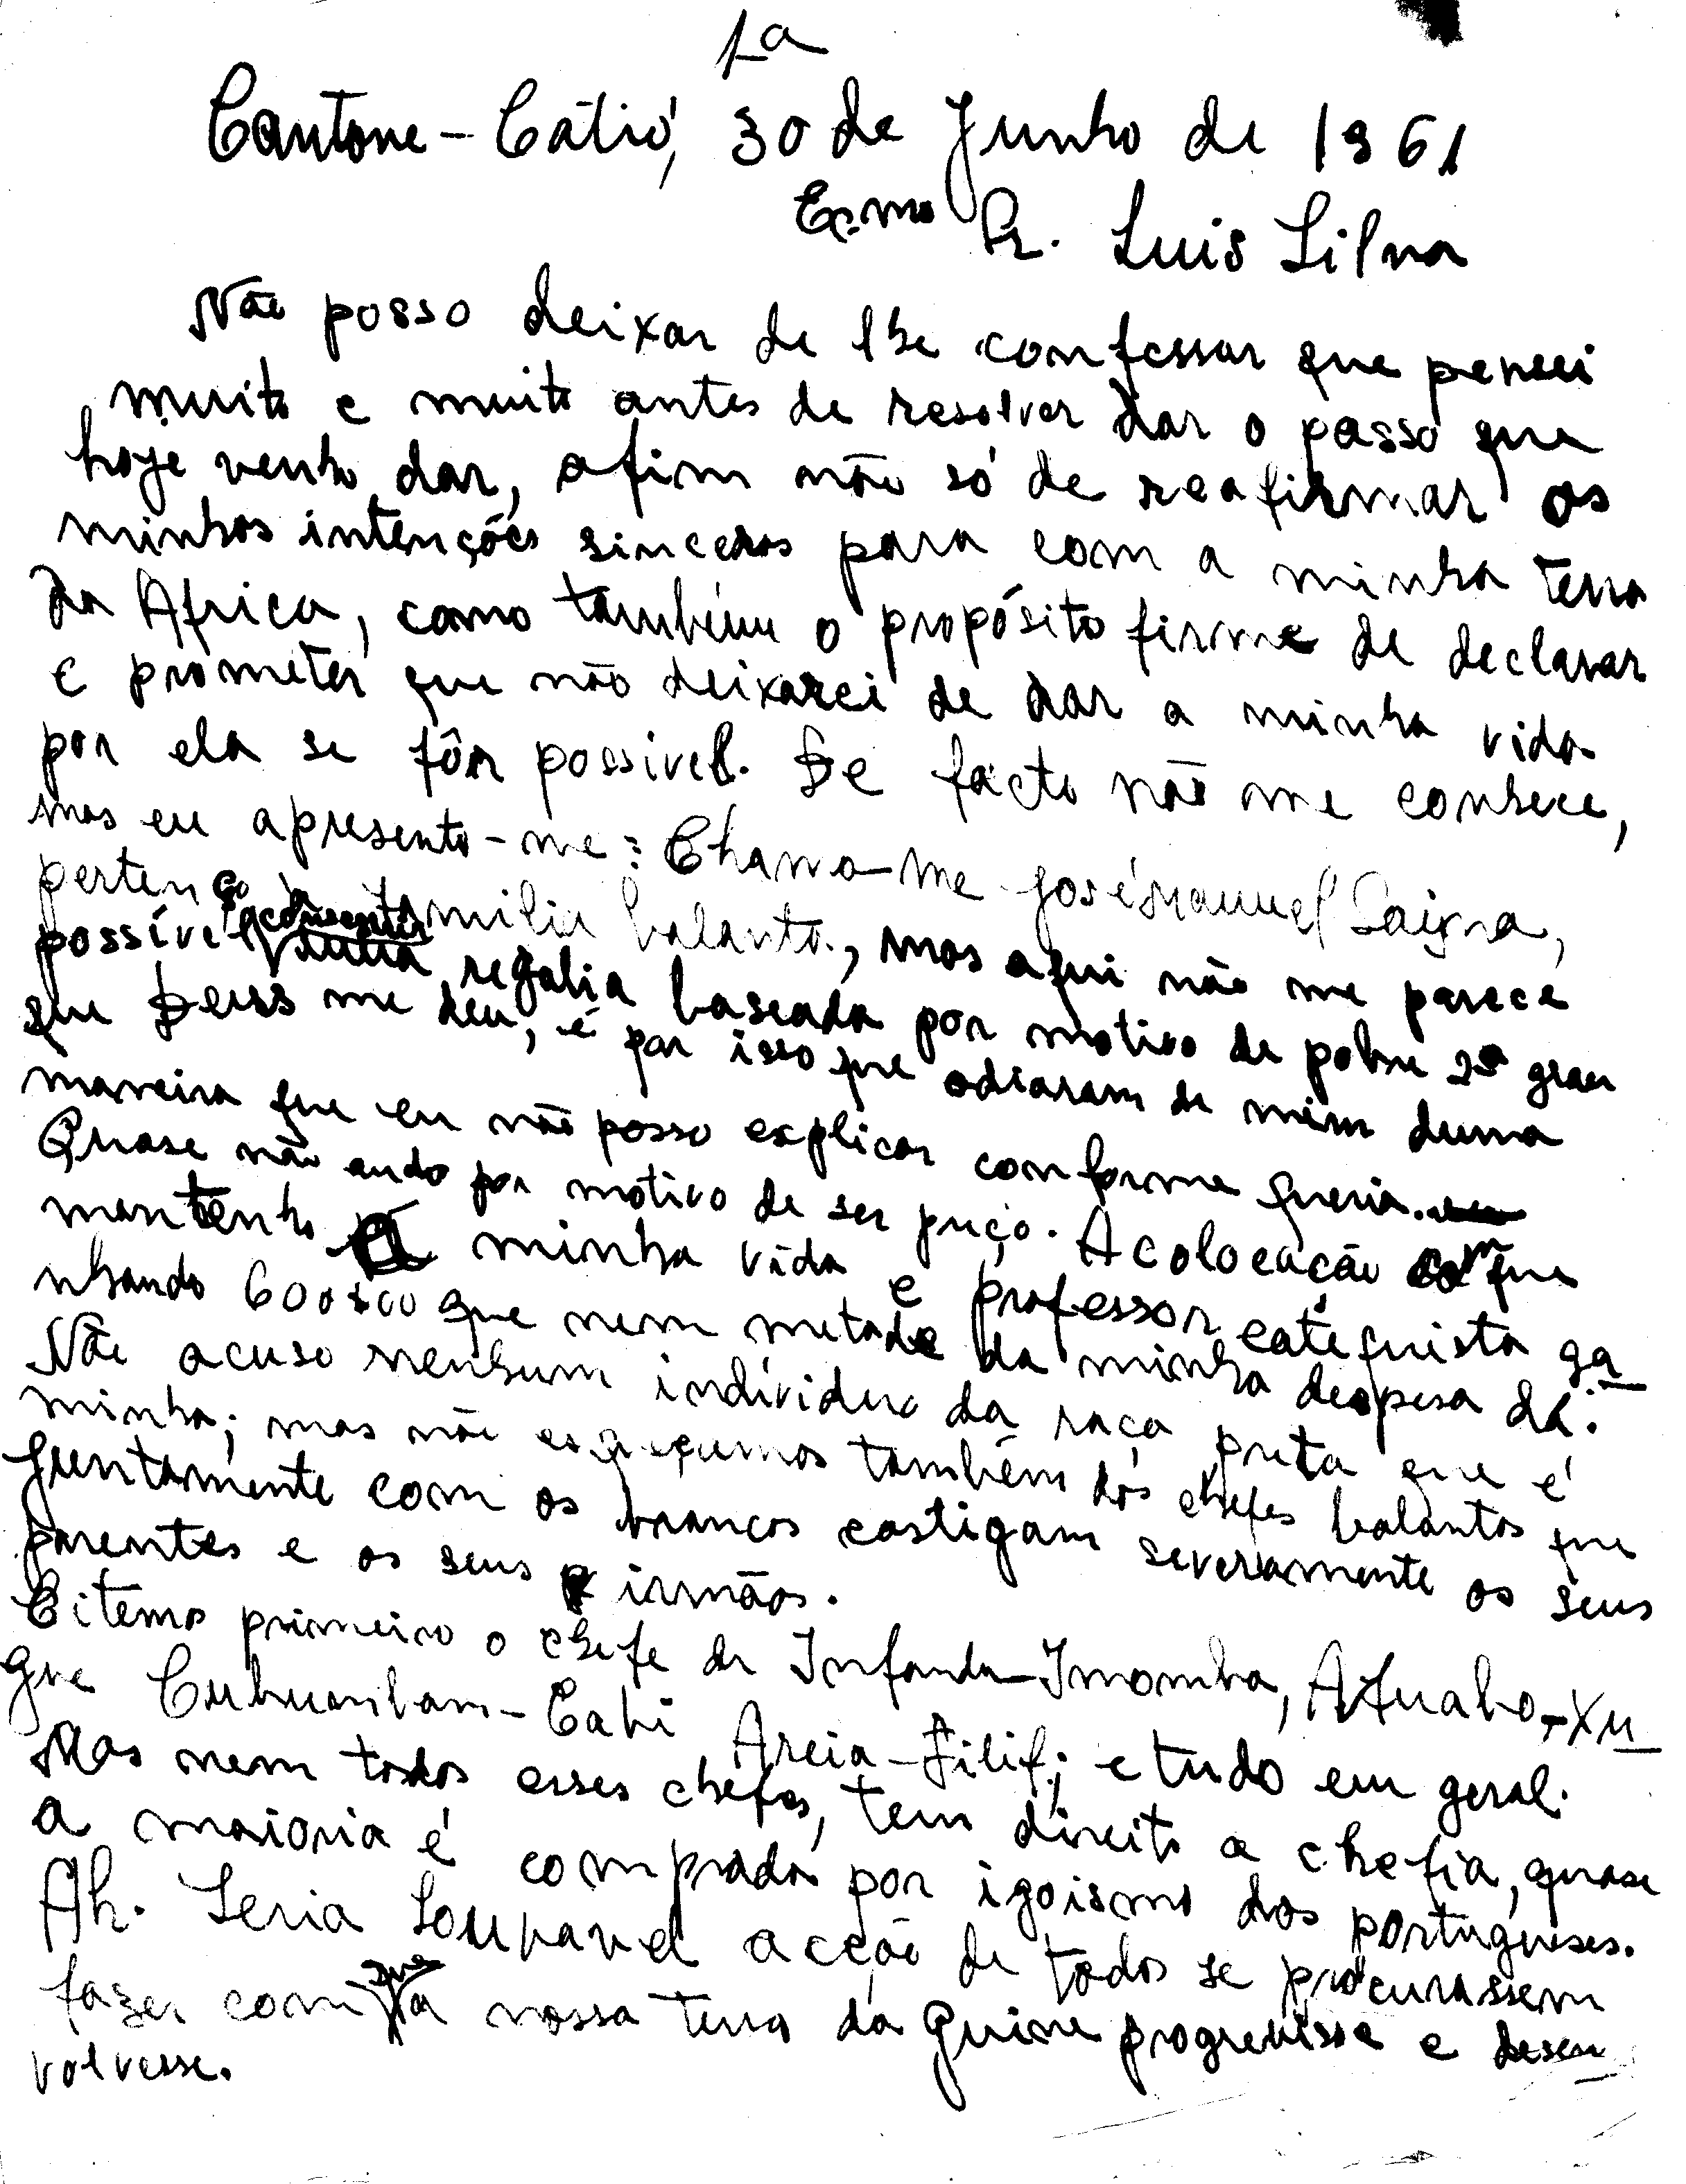 1a
Cantone - Catió, 30 de Junho de 1961
Ex.mo Sr. Luis Silva
Não posso deixar de lhe confessar que pensei
muito e muito antes de resolver dar o passo que
hoje venho dar, afim não só de reafirmar as
minhas intenções sinceras para com a minha terra
da Africa, como também o propósito firme de declarar
e prometer que não deixarei de dar a minha vida
por ela se fôr possivel. De facto não me conhece,
mas eu apresento-me: Chamo-me José Manuel Saigna,
pertenço a familia balanta, mas aqui não me parece
possível regalia baseada por motivo de pobre 2º grau
que Deuss me deu, é por isso que odiaram de mim duma
maneira que eu não posso explicar conforme queria.
Quase não ando por motivo de ser preço. A colocação com que
mantenho a minha vida é professor catequista ga
nhando 600$00 que nem metade da minha despesa dá.
Não acuso nenhum indíviduo da raça preta que é
minha; mas não esqueçamos também dos chefes balantas que
juntamente com os brancos castigam severamente os seus
parentes e os seus irmãos.
Citemos primeiro o chefe de Infanda-Imomba, Afuabo-Xu
gue Cubumbam-Cabi Areia-Filif; e tudo em geral.
Mas nem todos esses chefes, tem direito a chefia, quase
a maioria é comprada por igoismo dos portugueses.
Ah. Seria Louvavel acção de todos se procurassem
fazer com que a nossa terra da Guine progredisse e desen
volvesse.